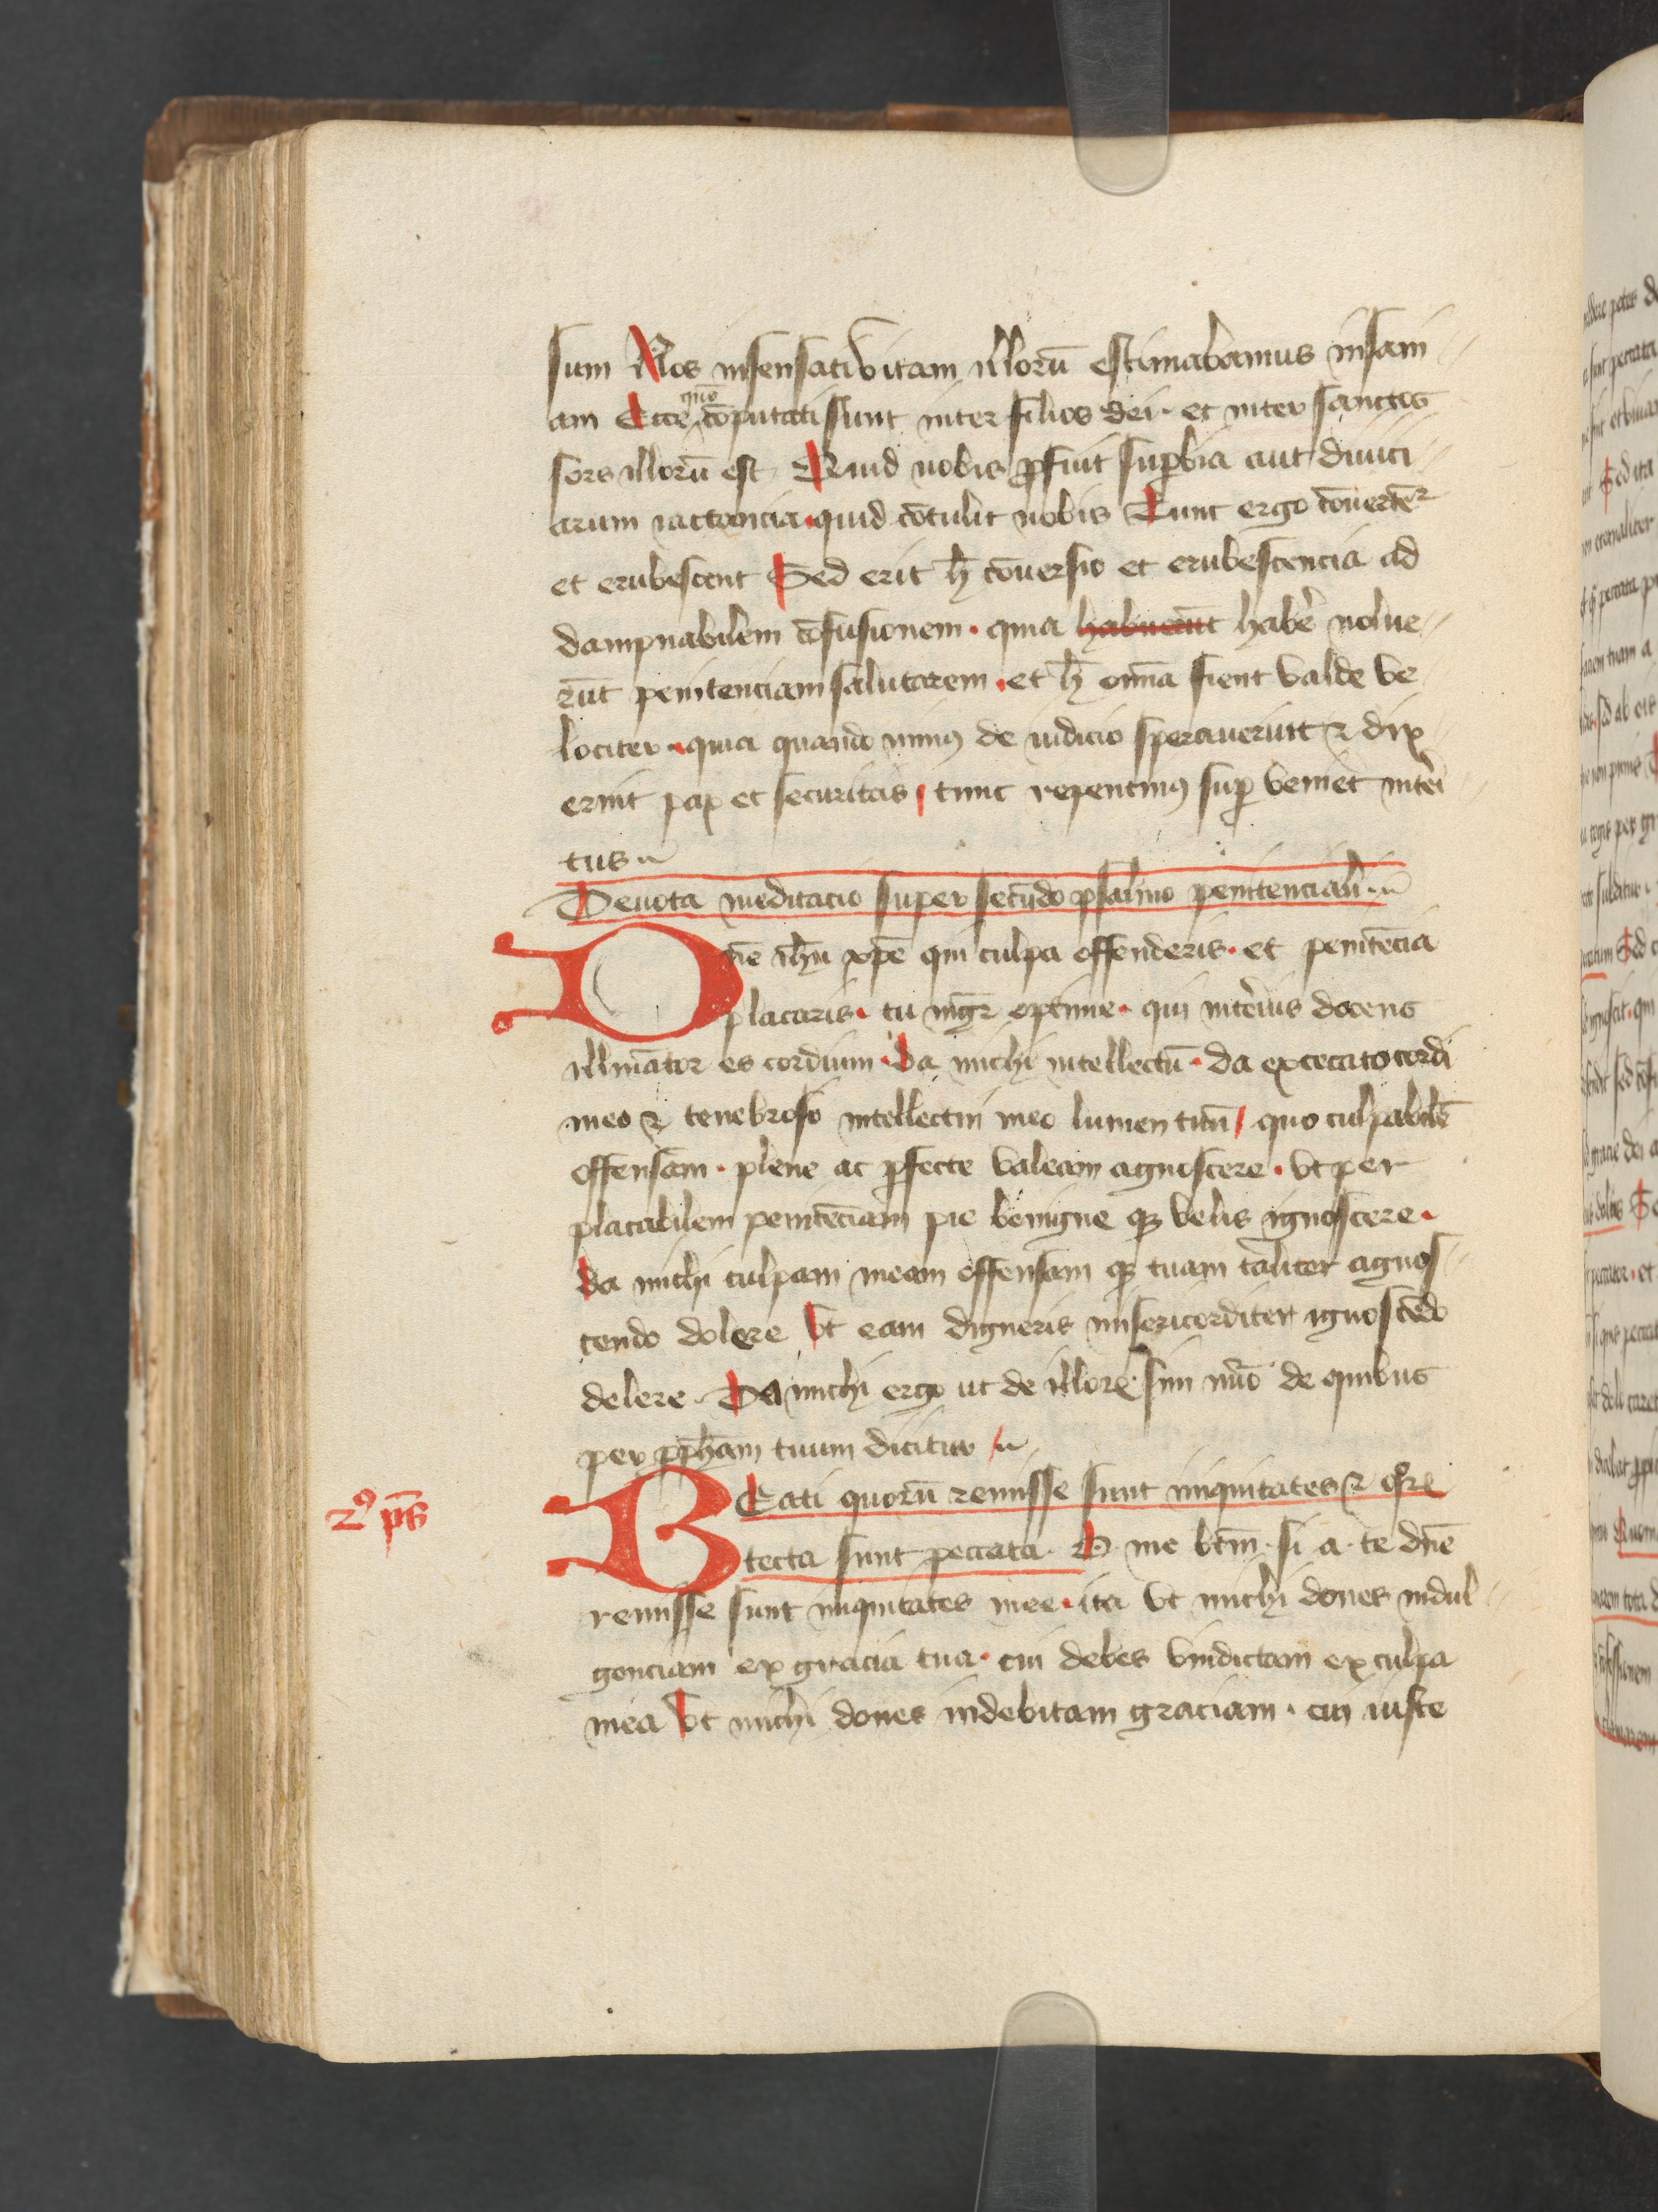 sum Nos insensati vitam illorū estimabamus insani
am Ecce quō cōputati sunt inter filios dei · et inter sanctos
sors illorū est Quid nobis ꝓfuit suꝑbia aut diuici
arum iactancia · quid cōtulit nobis Tunc ergo cōuertēꝛ
et erubescent Sed erit h̄ cōuersio et erubescencia ad
dampnabilem cōfusionem · quia habuerūt haber̄ nolue
rūt penitenciam salutarem · et h̄ om̄a fient valde ve
lociter · quia quando minꝰ de iudicio sperauerint ⁊ dix
erint pax et securitas / tunc repentinꝰ suꝑ veniet inter̄i
tus
Deuota meditacio super secūdo psalmo penitenciali
Dn̄e ihū xp̄e qui culpa offenderis · et penitēcia
placaris · tu mgr̄ optime · qui inter̄ius docens
illuīator es cordium · da michi intellectū · da excecato cordi
meo ⁊ tenebroso intellectui meo lumen tuū / quo culpabilē
offensam · plene ac ꝑfecte valeam agnoscere · vt per
placabilem penitēciam pie benigne qꝫ velis ignoscere ·
da michi culpam meam offensam qꝫ tuam tāliter agnos
cendo dolere vt eam digneris misericorditer ignoscēdo
delere · Da michi ergo ut de illorꝝ sim nūo de quibus
per ꝓph̄am tuum dicitur /
BEati quorū remisse sunt iniquitates ⁊ qͦꝝ
2ꝰ pˢ
tecta sunt peccata · O me btm̄ · si a · te dn̄e
remisse sunt iniquitates mee · ita vt michi dones indul
genciam ex gracia tua · cui debes vindictam ex culpa
mea vt michi dones indebitam graciam · cui iuste